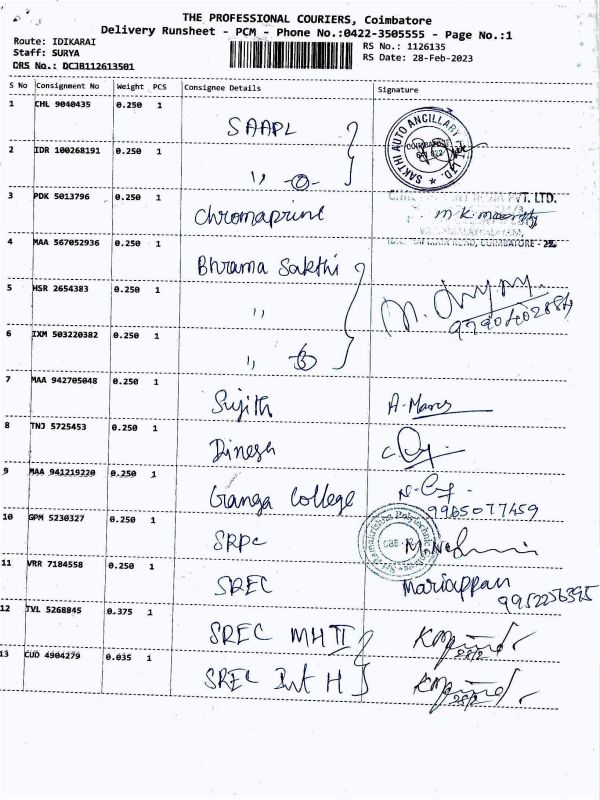 THE PROFESSIONAL COURIERS, Coimbatore
Delivery Runsheet - PCM - Phone No.:0422-3505555 - Page No.:1
Route: IDIKARAI
Staff: SURYA
DRS No.: DCJB112613501
RS No.: 1126135
RS Date: 28-Feb-2023
S No Consignment No Weight PCS Consignee Details Signature
1 CHL 9040435 0.250 1 SAAPL
SAKTHI AUTO ANCILLARY PVT. LTD.
2 IDR 100268191 0.250 1 ,,
3 PDK 5013796 0.250 1 Chromaprint
PVT. LTD.
COIMBATORE - 22
4 MAA 567052936 0.250 1 Bhrama Sakthi
5 HSR 2654383 0.250 1 ,,
6 IXM 503220382 0.250 1 ,,
7 MAA 942705048 0.250 1 Sujith
8 TNJ 5725453 0.250 1 Dinesh
9 MAA 941219220 0.250 1 Ganga College
9965077459
10 GPM 5230327 0.250 1 SRPC
11 VRR 7184558 0.250 1 SREC Mariappan
9952256395
12 TVL 5268845 0.375 1 SREC MH II
28/2
13 CUD 4904279 0.035 1 SREC Int H
28/2